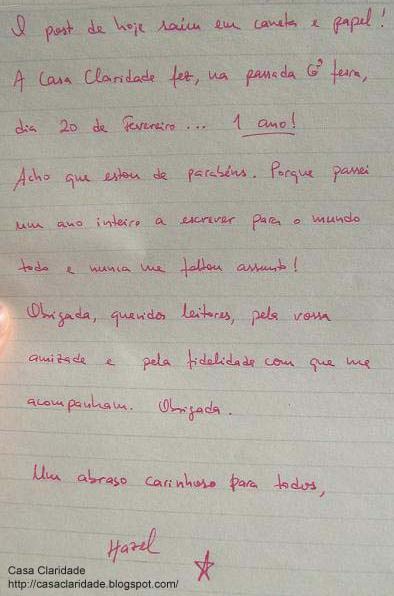 O post de hoje saiu em caneta e papel!
A Casa Claridade fez, na passada 6ª feira,
dia 20 de Fevereiro... 1 ano!
Acho que estou de parabéns. Porque passei
um ano inteiro a escrever para o mundo
todo e nunca me faltou assunto!
Obrigada, queridos leitores, pela vossa
amizade e pela fidelidade com que me
acompanham. Obrigada.
Um abraso carinhoso para todos,
Hazel
Casa Claridade
http://casaclaridade.blogspot.com/